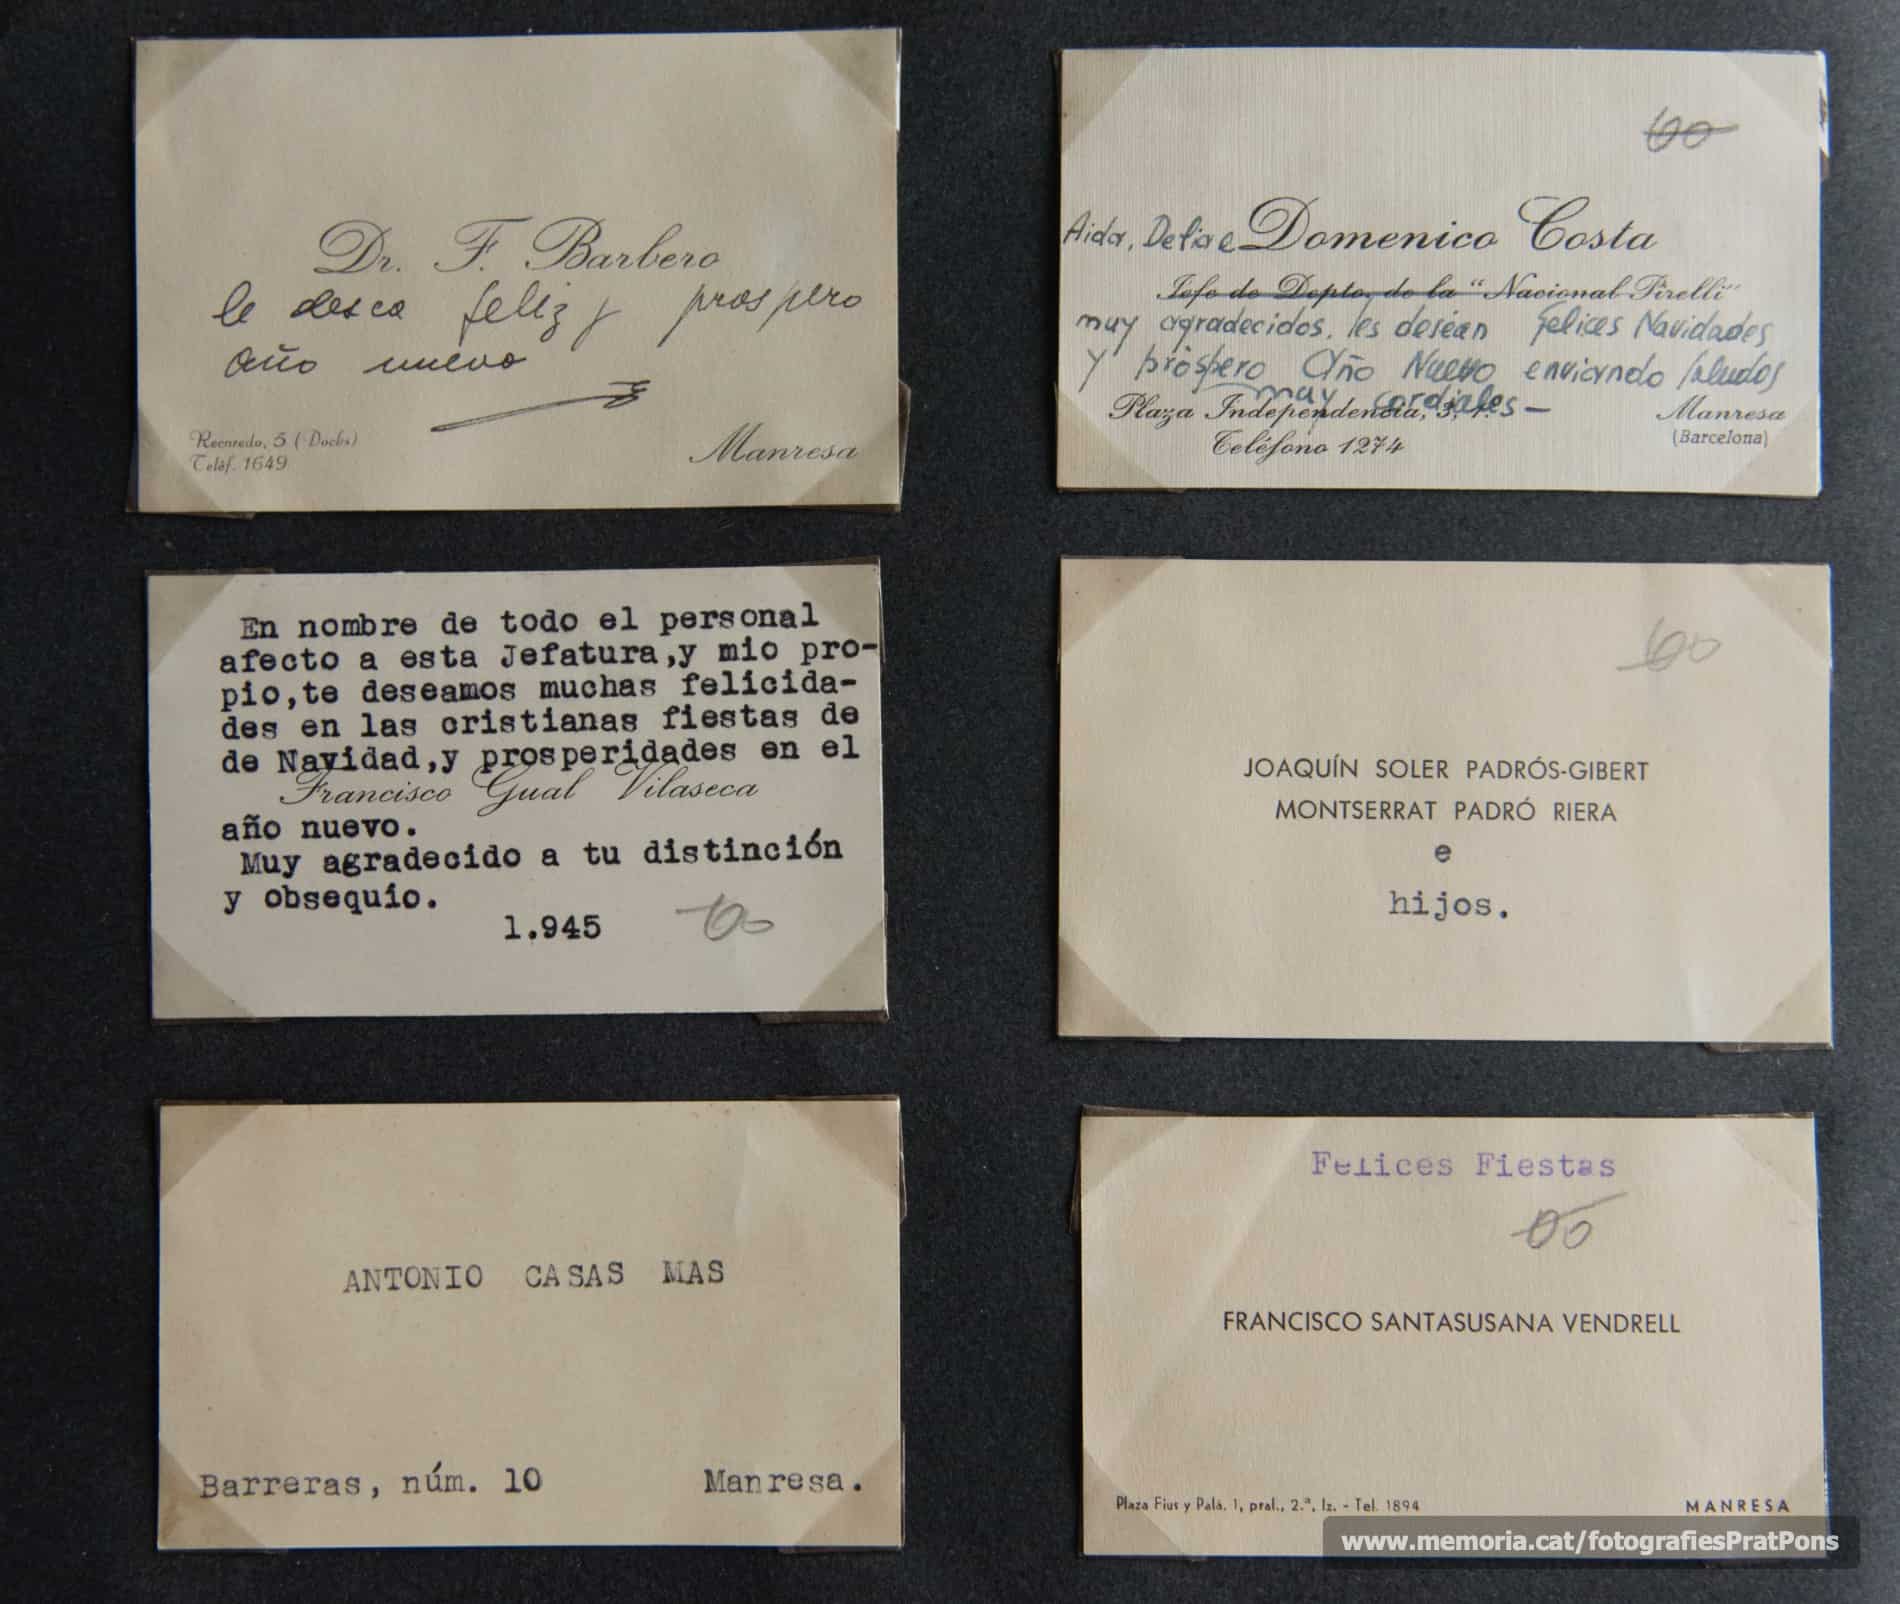 Dr. F. Barbero
le desea feliz y prospero
año nuevo
Recaredo, 5 (Dochs)
Teléf. 1649
Manresa
60
Aida, Delia e Domenico Costa
Jefe de Depto. de la "Nacional Pirelli"
muy agradecidos. les deséan Felices Navidades
y próspero Año Nuevo enviando saludos
muy cordiales -
Plaza Independencia, 3, 1.º
Manresa
Teléfono 1274
(Barcelona)
En nombre de todo el personal
afecto a esta Jefatura,y mio pro-
pio,te deseamos muchas felicida-
des en las cristianas fiestas de
de Navidad,y prosperidades en el
Francisco Gual Vilaseca
año nuevo.
Muy agradecido a tu distinción
y obsequio.
1.945
60
JOAQUÍN SOLER PADRÓS-GIBERT
MONTSERRAT PADRÓ RIERA
e
hijos.
ANTONIO CASAS MAS
Barreras, núm. 10
Manresa.
Felices Fiestas
FRANCISCO SANTASUSANA VENDRELL
Plaza Fius y Palá, 1, pral., 2.ª, Iz. - Tel. 1894
MANRESA
www.memoria.cat/fotografiesPratPons